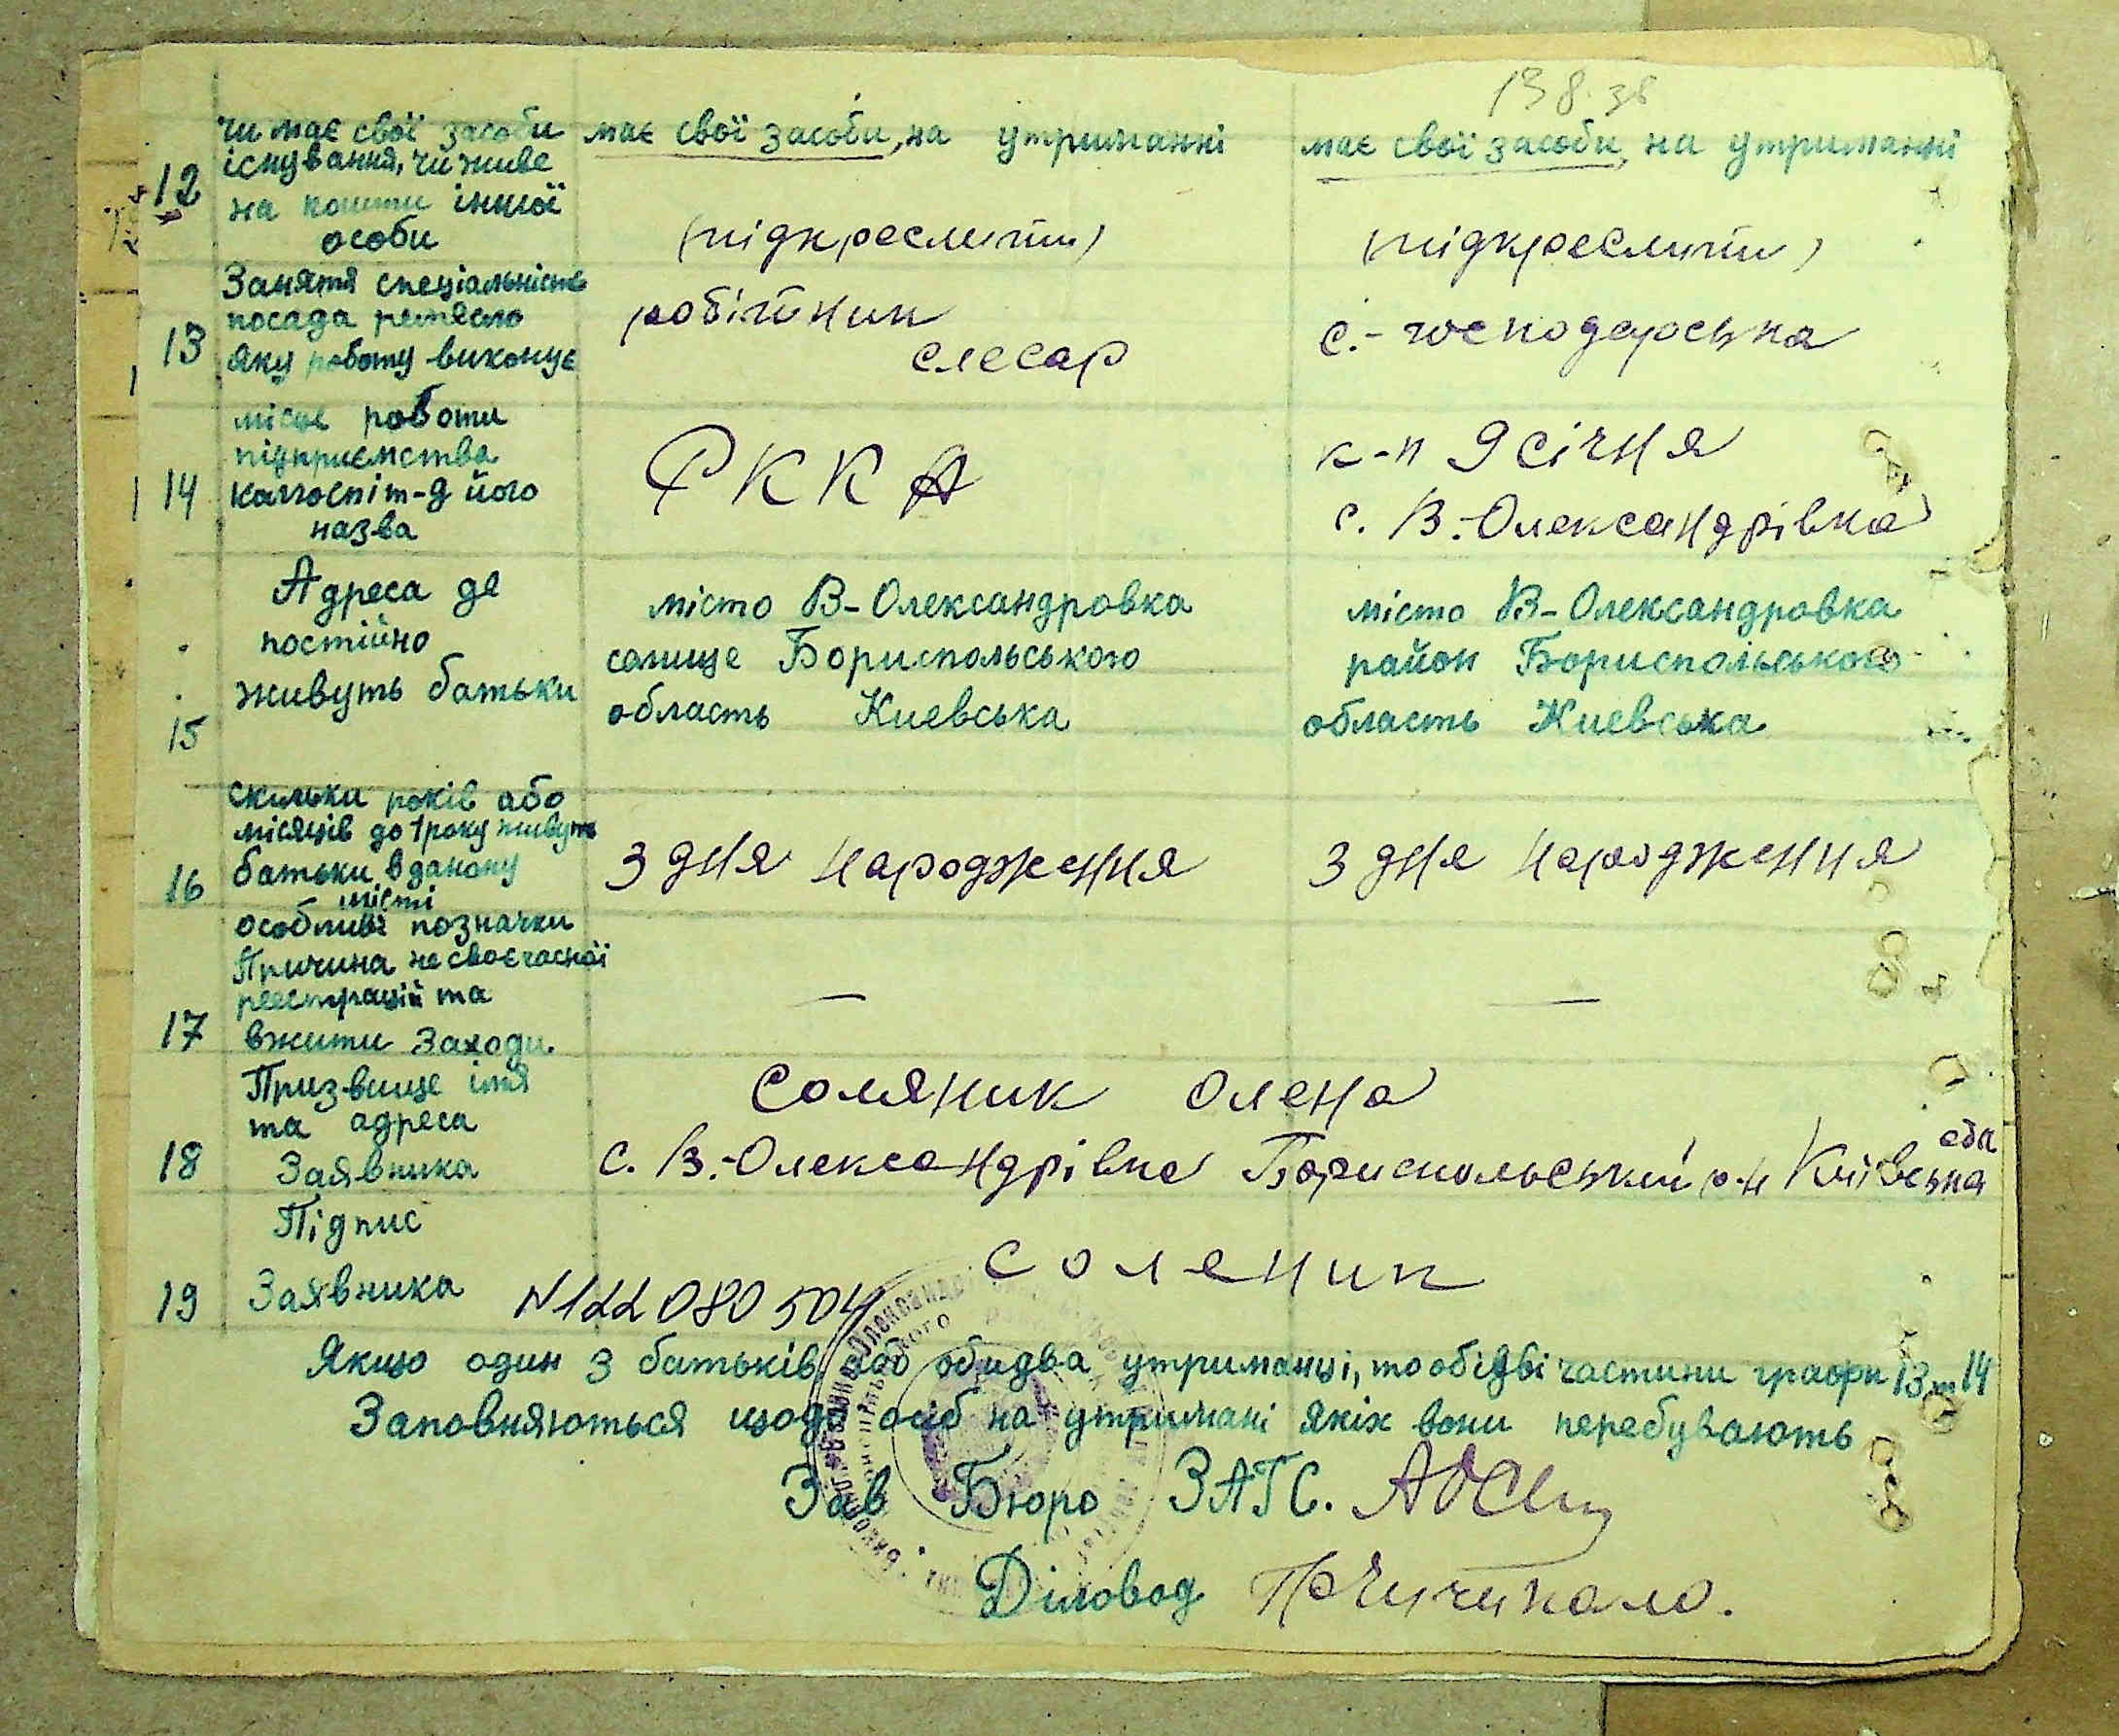 138 зв
12
чи має свої засоби
існування, чи живе
на кошти іншої
особи
має свої засоби, на утриманні
(підкреслити)
має свої засоби, на утриманні
(підкреслити)
13
Заняття спеціальність
посада ремесло
яку роботу виконує
робітник
слесар
с.-господарська
14
місце роботи
підприємства
колгоспіт-д його
назва
РККА
к-п 9 січня
с. В.-Олександрівка
15
Адреса де
постійно
живуть батьки
місто В-Олександровка
селище Бориспольського
область Киевська
місто В-Олександровка
район Бориспольського
область Киевська
16
скильки років або
місяців до 1 року живуть
батьки в даному
місті
З дня народження
З дня народження
17
особливі позначки
Причина не своєчасної
реєстрації та
вжити заходи
—
—
18
Призвище імя
та адреса
Заявника
Соляник Олена
с. В.-Олександрівка Бориспольський р-н Київська обл
19
Підпис
Заявника
Соленик
№122080504
Якщо один з батьків або обидва утриманці, то обідві частини графи 13 т 14
Заповняються щодо осіб на утримані якіх вони перебувають
Зав Бюро ЗАГС.
Діловод